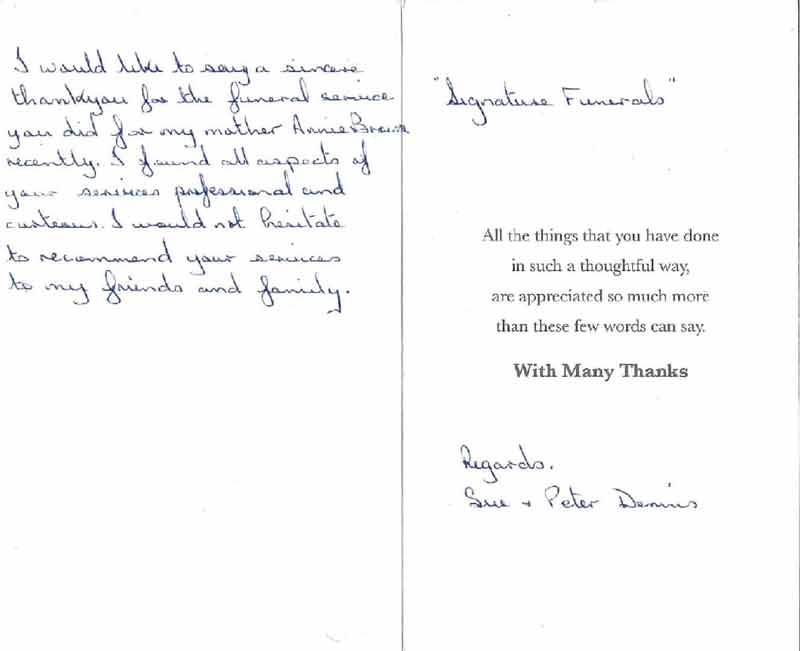 I would like to say a sincere
thankyou for the funeral service
you did for my mother Annie Brown
recently. I found all aspects of
your services professional and
custeous. I would not hesitate
to recommend your services
to my friends and family.
"Signature Funerals"
All the things that you have done
in such a thoughtful way,
are appreciated so much more
than these few words can say.
With Many Thanks
Regards.
Sue + Peter Dennis